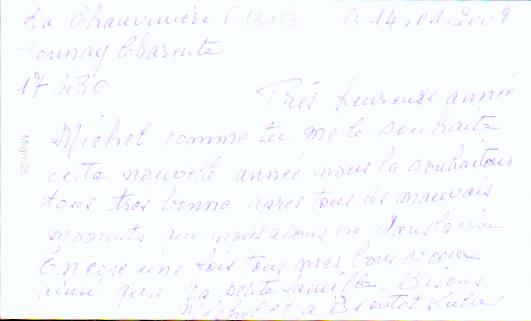 La Chauvinière F-13153 le 14.01.2009
tonnay Charente
17 430
Très heureuse année
Michel comme tu me le souhaite
cette nouvelle année nous la souhaitons
tous très bonne après tous les mauvais
moments que nous avons eu dans la vie
Encore une fois tous mes bons vœux
ainsi que ta petite famille. Bisous
Michel et a Bientot
Mign 05